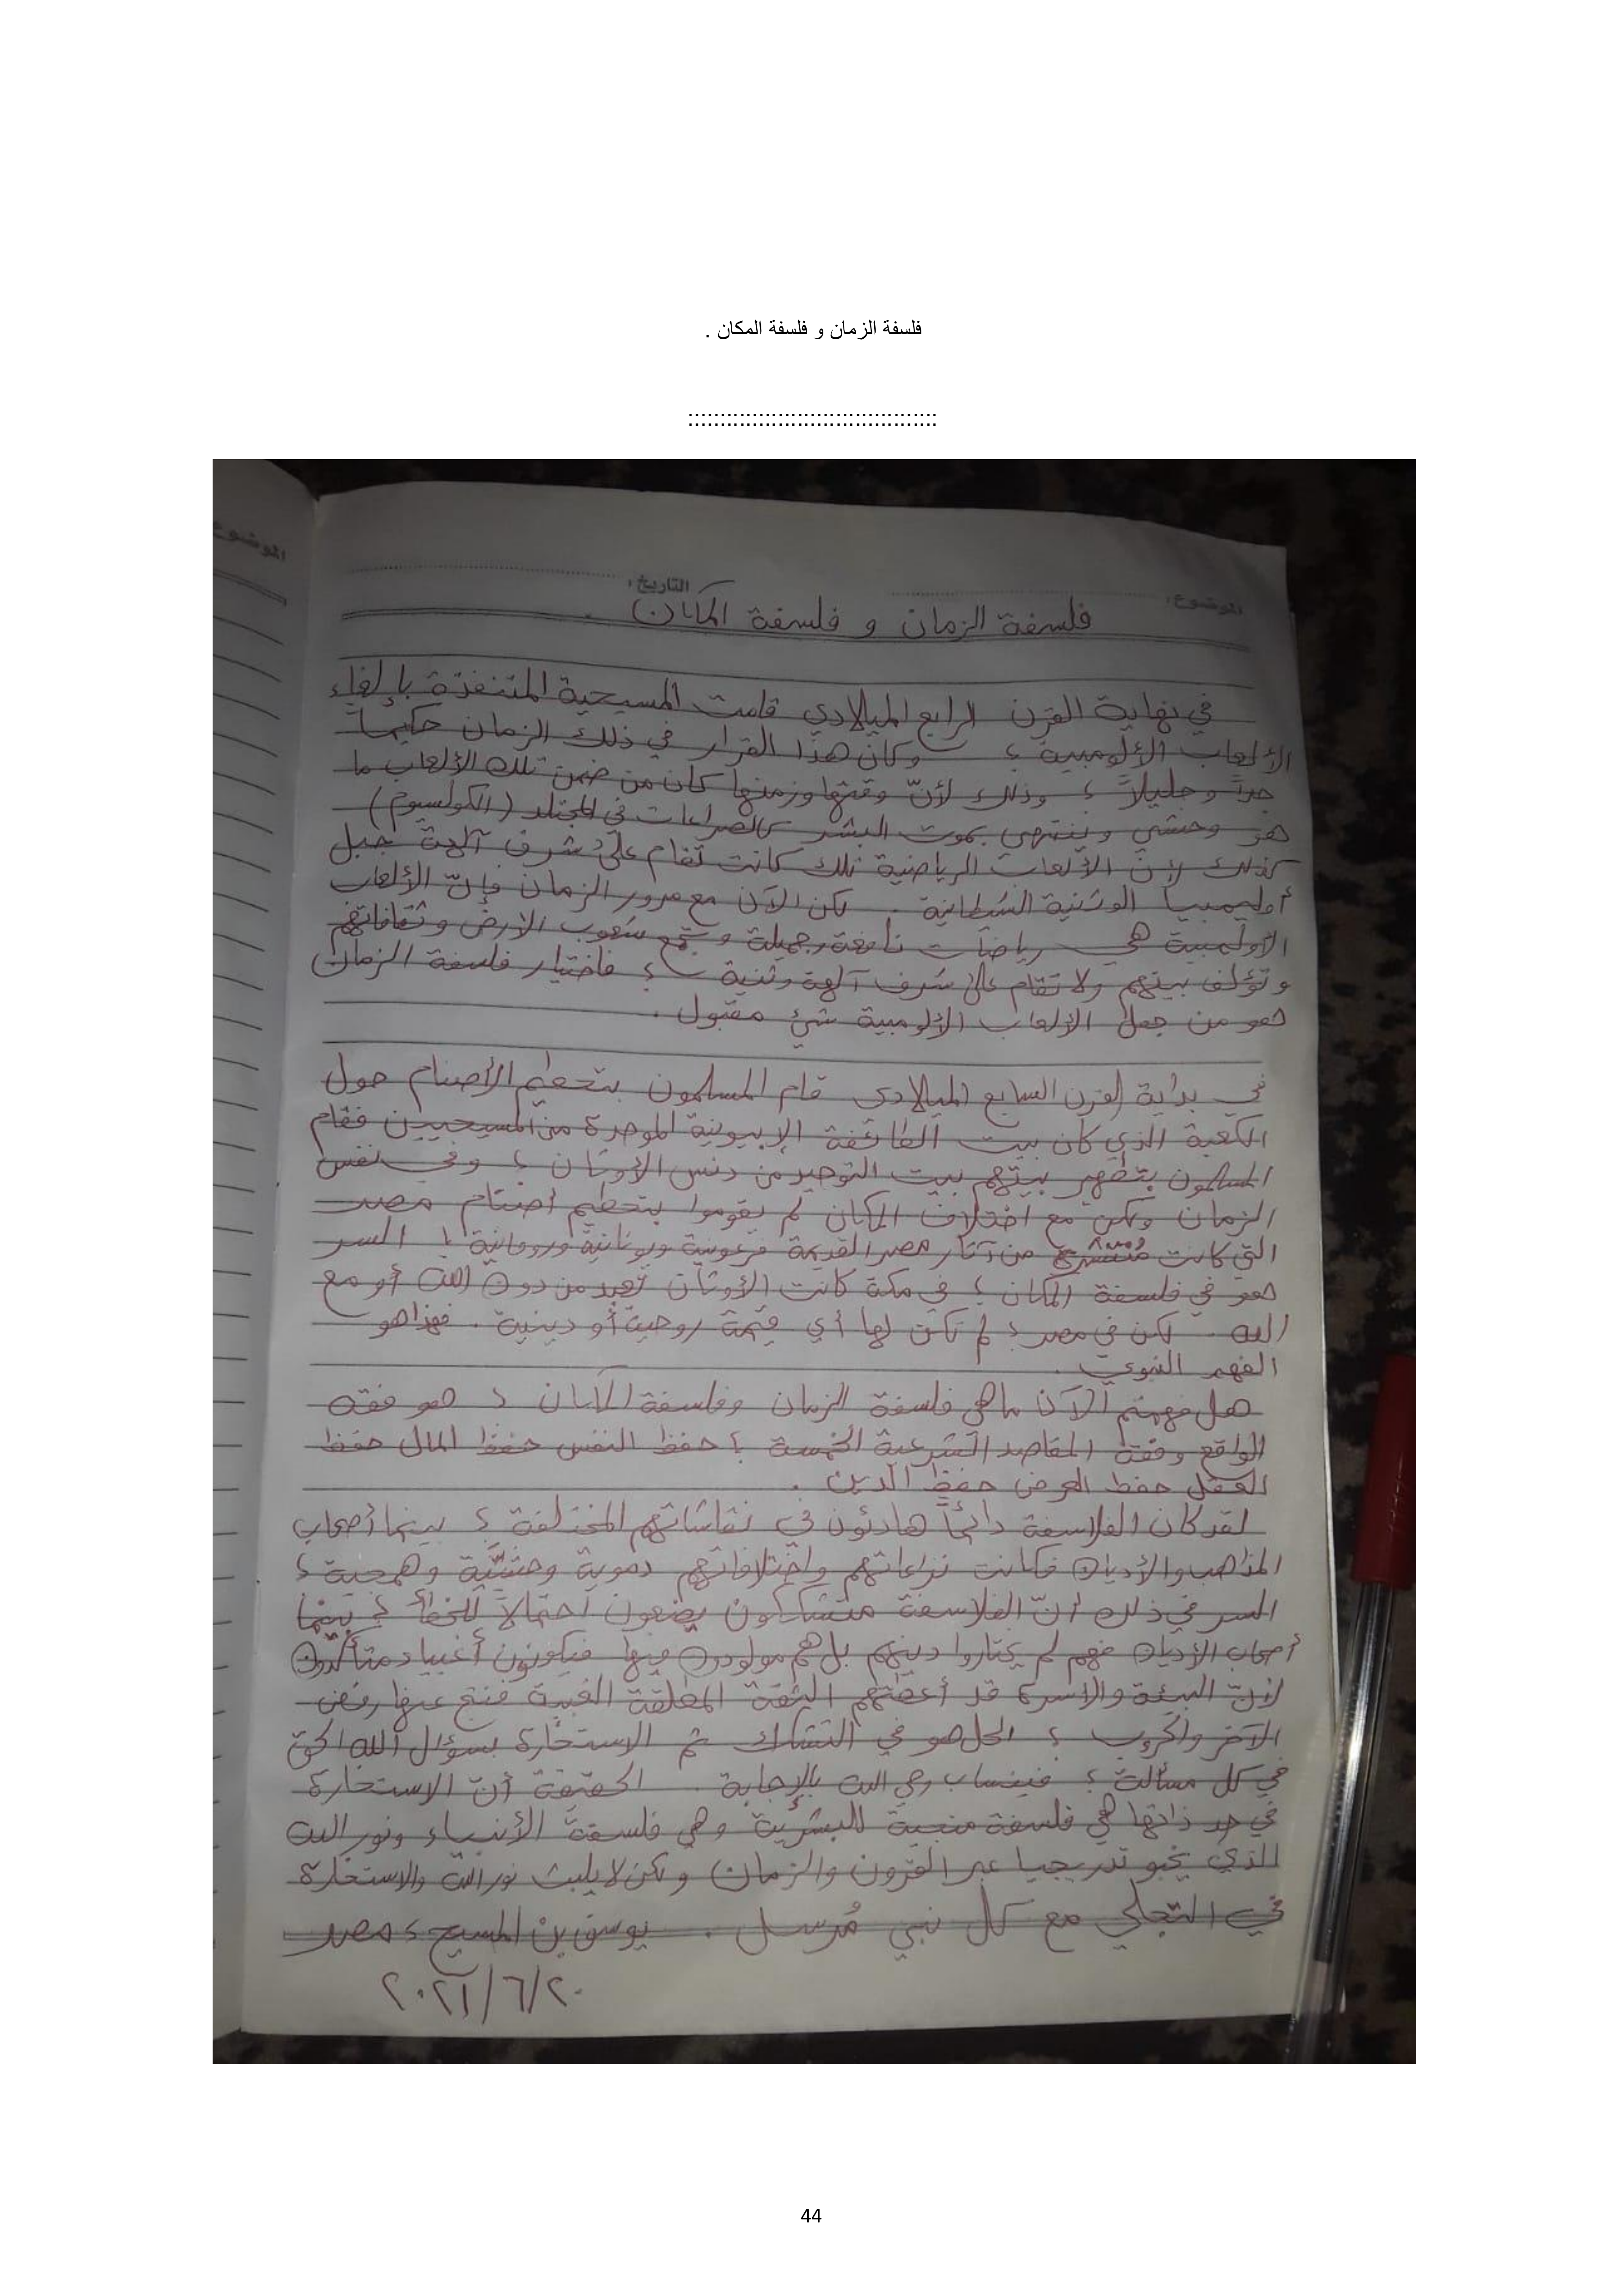 فلسفة الزمان و فلسفة المكان .
::::::::::::::::::::::::::::::::::::::
الموضوع
الموضوع: التاريخ:
فلسفة الزمان و فلسفة المكان .
في نهاية القرن الرابع الميلادي قامت المسيحية المتنفذة بإلغاء
الألعاب الأولومبية ؛ وكان هذا القرار في ذلك الزمان حكيماً
جداً و جليلاً ؛ وذلك لأنّ وقتها وزمنها كان من ضمن تلك الألعاب ما
هو وحشي وينتهي بموت البشر كالصراعات في المجتلد (الكولسيوم)
كذلك لأن الألعاب الرياضية تلك كانت تقام على شرف آلهة جبل
أوليمبيا الوثنية الشيطانية . لكن الآن مع مرور الزمان فإنّ الألعاب
الأولمبية هي رياضات نافعة وجميلة و تجمع شعوب الارض وثقافاتهم
وتؤلف بينهم ولا تقام على شرف آلهة وثنية ؛ فاختيار فلسفة الزمان
هو من جعل الألعاب الأولومبية شئ مقبول .
في بداية القرن السابع الميلادى قام المسلمون بتحطيم الأصنام حول
الكعبة الذي كان بيت الطائفة الإبيونية الموحدة من المسيحيين فقام
المسلمون بتطهير بيتهم بيت التوحيد من دنس الأوثان ؛ وفي نفس
الزمان ولكن مع اختلاف المكان لم يقوموا بتحطيم أصنام مصر
التي كانت منتشرة من آثار مصر القديمة فرعونية ويونانية ورومانية ! السر
هو في فلسفة المكان ؛ في مكة كانت الأوثان تعبد من دون الله أو مع
الله . لكن في مصر ؛ لم تكن لها أي قيمة روحية أو دينية . فهذا هو
الفهم النبوي .
هل فهمتم الآن ما هي فلسفة الزمان وفلسفة المكان ؛ هو فقه
الواقع وفقه المقاصد الشرعية الخمسة ؛ حفظ النفس حفظ المال حفظ
العقل حفظ العرض حفظ الدين .
لقد كان الفلاسفة دائماً هادئون في نقاشاتهم المختلفة ؛ بينما أصحاب
المذاهب والأديان فكانت نزاعاتهم واختلافاتهم دموية وحشيّة وهمجية ؛
السر في ذلك أنّ الفلاسفة متشككون يضعون احتمالاً للخطأ ؛ بينما
أصحاب الأديان فهم لم يختاروا دينهم بل هم مولودون فيها فيكونون أغبياء متأكدون
لأنّ البيئة والاسرة قد أعطتهم الثقة المطلقة الغبية فنتج عنها رفض
الآخر والحروب ؛ الحل هو في التشكك ثم الاستخارة بسؤال الله الحق
في كل مسألة ؛ فينساب وحي الله بالإجابة . الحقيقة أنّ الاستخارة
في حد ذاتها هي فلسفة منجية للبشرية وهي فلسفة الأنبياء ونور الله
الذي يخبو تدريجيا عبر القرون والزمان ولكن لا يلبث نور الله والاستخارة
في التجلي مع كل نبي مُرسل . يوسف بن المسيح ؛ مصر
٢٠٢١/٦/٢٠
44